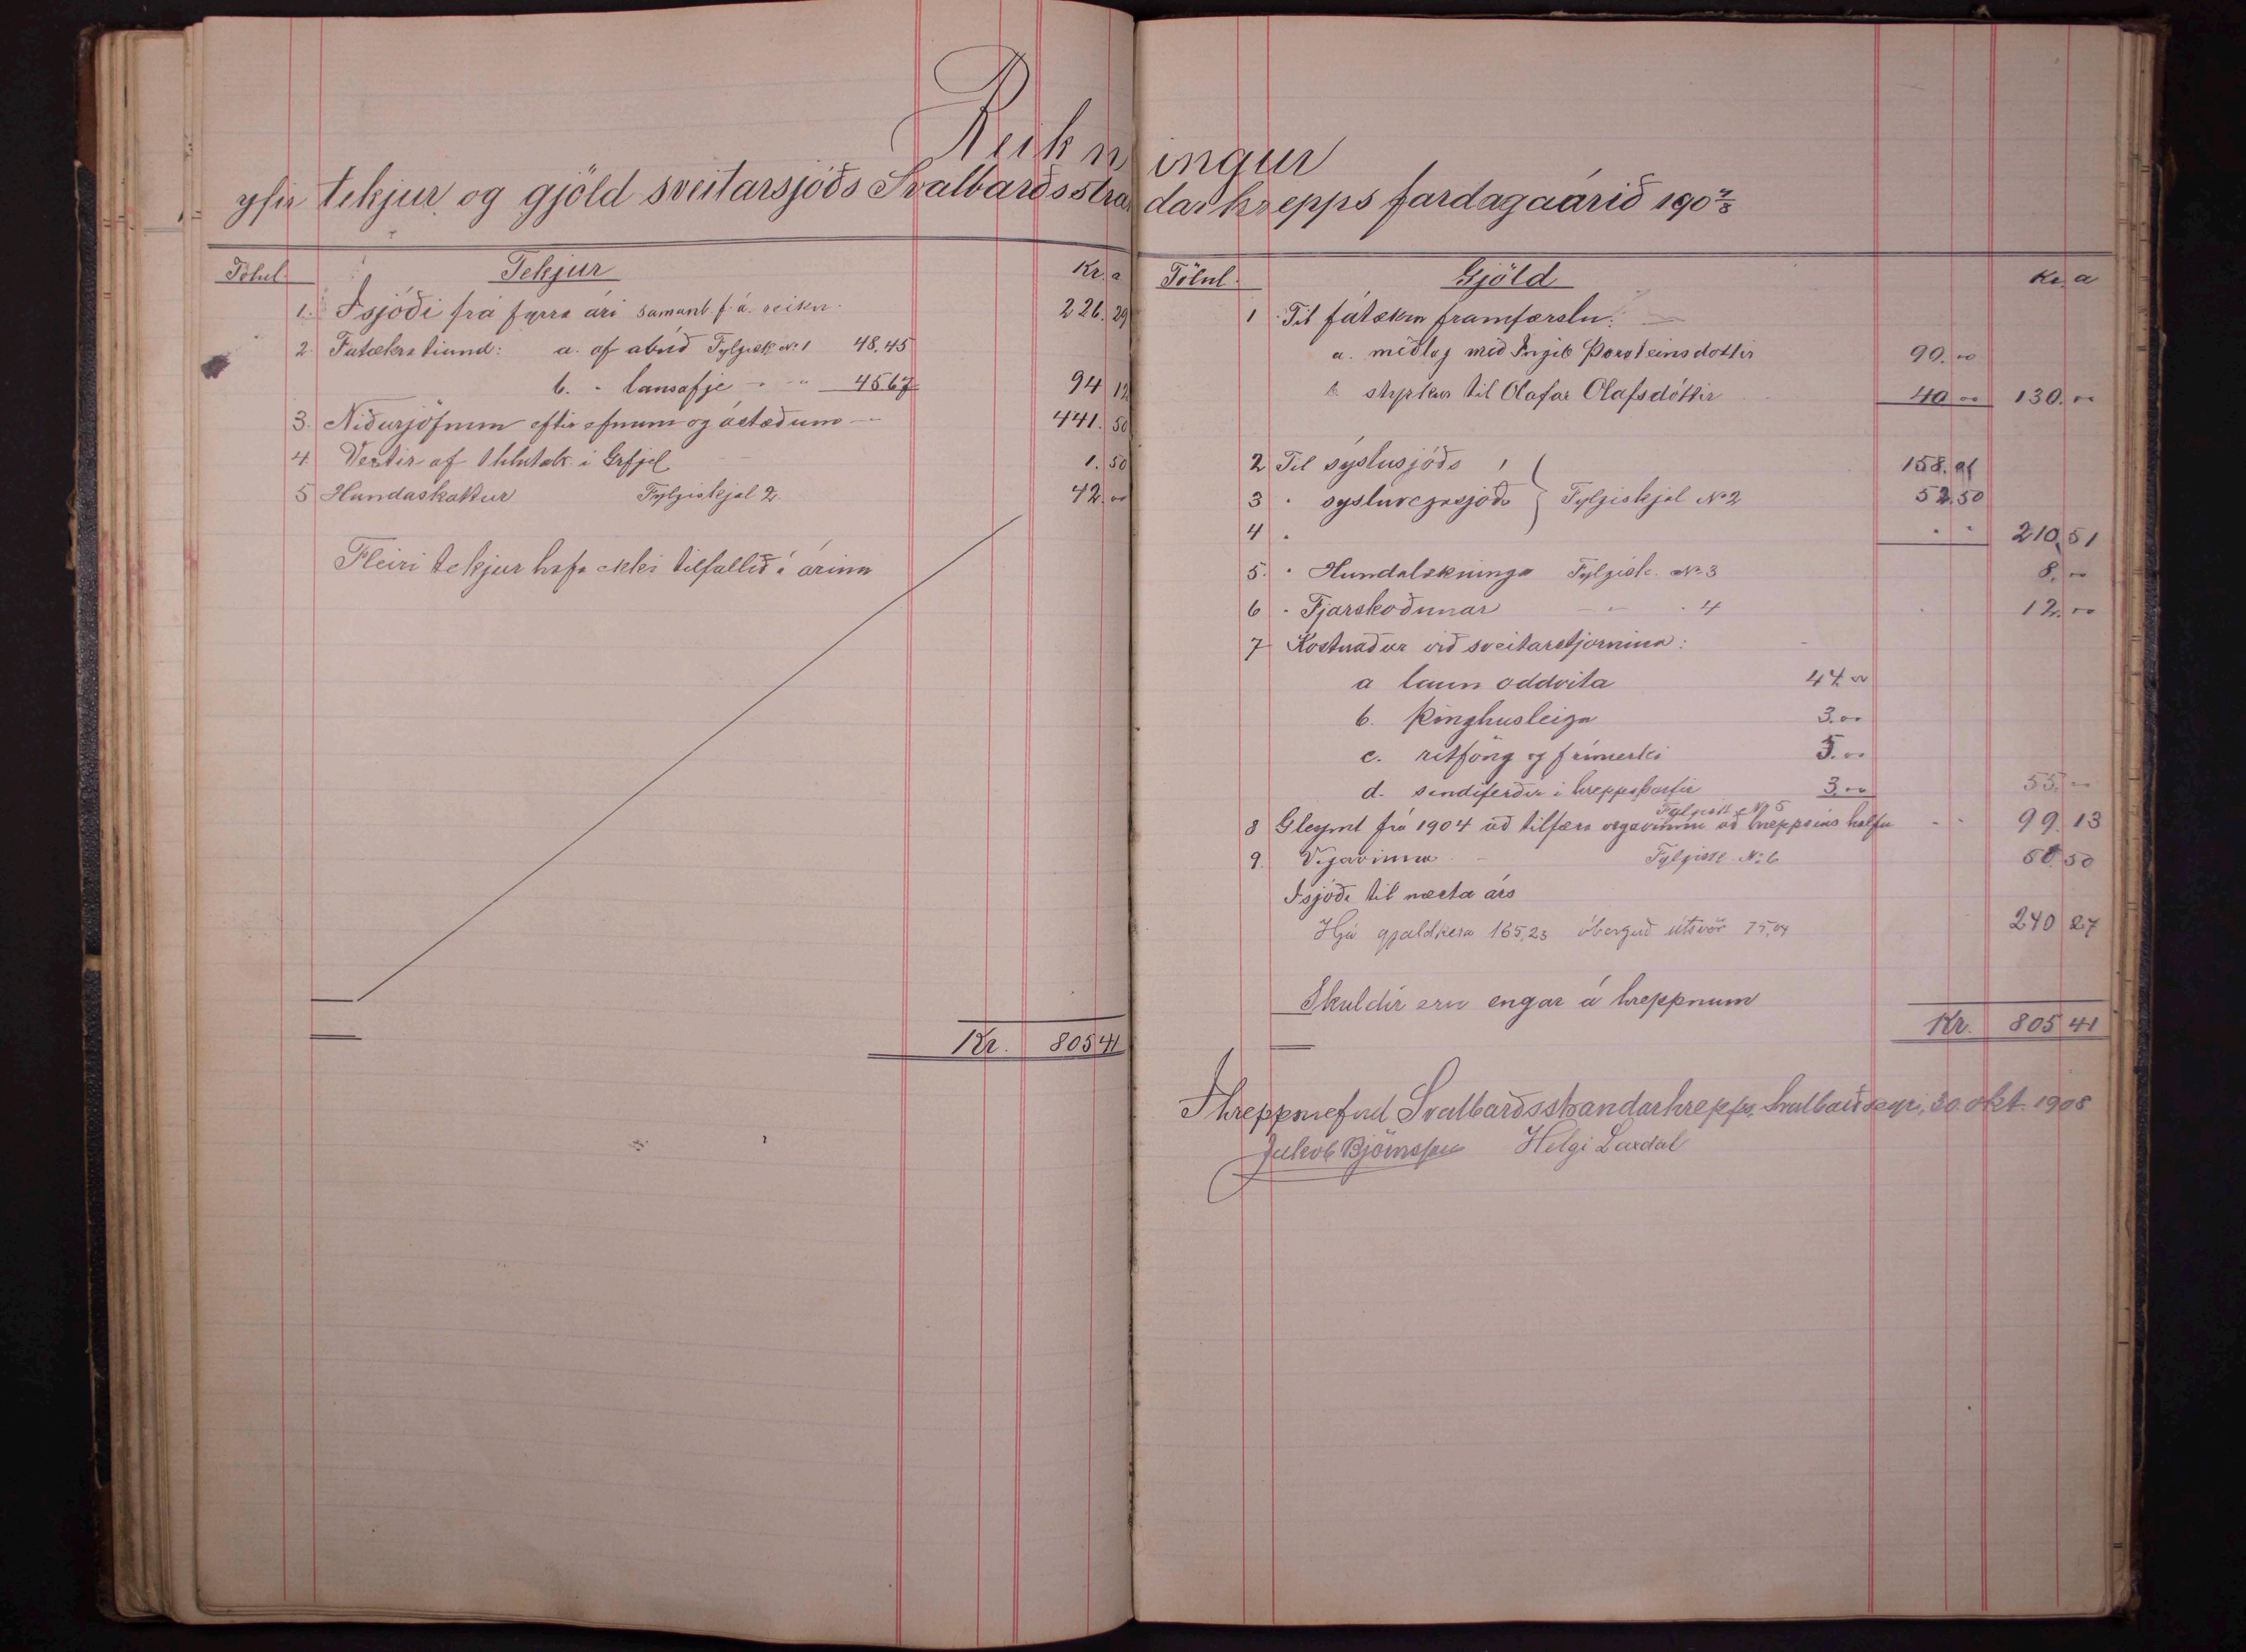 Reikningur
yfir tekjur og gjöld sveitarsjóðs Svalbarðsstrandarhrepps fardagaárið 190 7/8
Tölul. Tekjur Kr. a
1. Í sjóði frá fyrra ári samanb. f. á. reikn. 226. 29
2. Fátækratiund: a. af ábúð Fylgisk. No 1 48,45
b. " lausafje " " " 45 67 94 12
3. Niðurjöfnun eftir efnum og ástæðum 441. 50
4. Vextir af í 1. 50
5 Hundaskattur Fylgiskjal 2. 42. 00
Fleiri tekjur hafa ekki tilfallið á árinu
Kr. 805 41
Tölul. Gjöld Kr. a
1 Til fátækra framfærslu:
a. meðlag með Ingib Þorsteinsdottir 90. 00
b styrkur til Olafar Olafsdóttir 40 00 130. 00
2 Til sýslusjóðs 158. 01
3 " sysluvegasjóðs Fylgiskjal No 2 52,50
4 " " " 210,51
5. " Hundalækninga Fylgisk. No 3 8. 00
6 " Fjarskoðunar " " 4 12. 00
7 Kostnaður við sveitarstjornina:
a laun oddvita 44. 00
b. þinghusleiga 3. 00
c. ritföng og frímerki 5. 00
d. sendiferðir i hreppsþarfir 3. 00 55. 00
Fylgisk No 5
8 Gleymt frá 1904 að tilfæra vegavinnu að hreppsins halfu " " 99. 13
9. Vegavinna Fylgisk. No 6 50. 50
Í sjóði til næsta árs
Hjá gjaldkera 165,23 óborguð útsvör 75,04 240 27
Skuldir eru engar á hreppnum
Kr. 805 41
Í hreppsnefnd Svalbarðsstrandarhrepps, Svalbarðseyri, 30. okt. 1908
Jakob Björnsson Helgi Laxdal